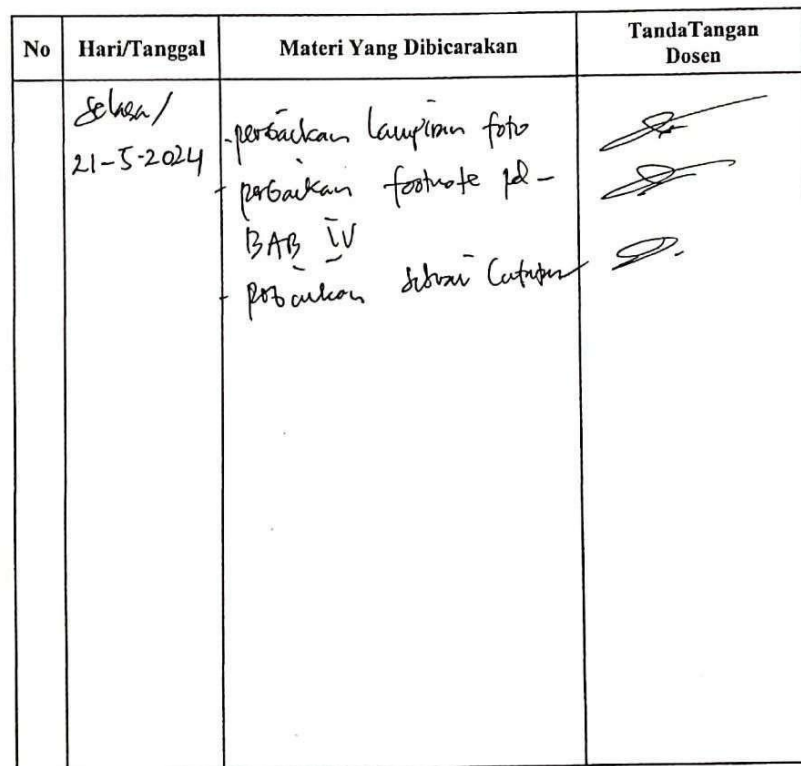 No Hari/Tanggal Materi Yang Dibicarakan TandaTangan Dosen
Selasa/
21-5-2024
- perbaikan lampiran foto
- perbaikan footnote pd -
BAB IV
- perbaikan sesuai Catatan